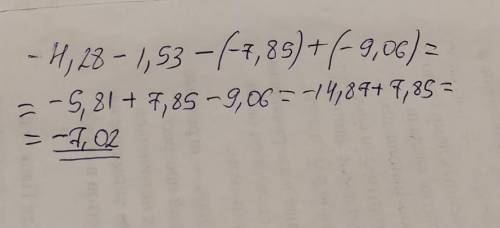 - 4,28 - 1,53 - (-7,85) + (-9,06) =
= -5,81 + 7,85 - 9,06 = -14,87 + 7,85 =
= -7,02